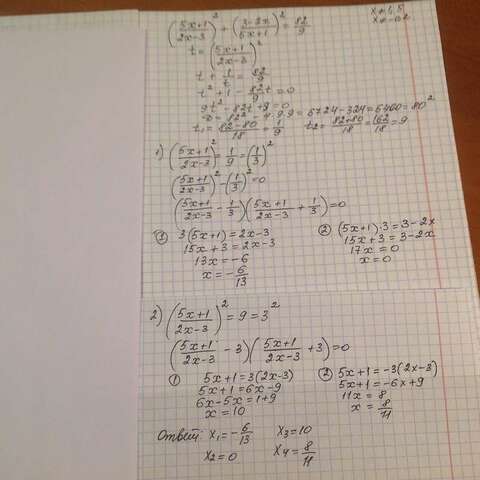 x ≠ 1,5
x ≠ -0,2
((5x+1)/(2x-3))² + ((3-2x)/(5x+1))² = 82/9
t = ((5x+1)/(2x-3))²
t + 1/t = 82/9
t² + 1 - 82/9 t = 0
9t² - 82t + 9 = 0
D = 82² - 4·9·9 = 6724 - 324 = 6400 = 80²
t₁ = (82-80)/18 = 1/9   t₂ = (82+80)/18 = 162/18 = 9
1) ((5x+1)/(2x-3))² = 1/9 = (1/3)²
((5x+1)/(2x-3))² - (1/3)² = 0
((5x+1)/(2x-3) - 1/3)((5x+1)/(2x-3) + 1/3) = 0
① 3(5x+1) = 2x-3
15x + 3 = 2x - 3
13x = -6
x = -6/13
② (5x+1)·3 = 3-2x
15x + 3 = 3 - 2x
17x = 0
x = 0
2) ((5x+1)/(2x-3))² = 9 = 3²
((5x+1)/(2x-3) - 3)((5x+1)/(2x-3) + 3) = 0
① 5x+1 = 3(2x-3)
5x+1 = 6x-9
6x-5x = 1+9
x = 10
② 5x+1 = -3(2x-3)
5x+1 = -6x+9
11x = 8
x = 8/11
Ответ: x₁ = -6/13   x₃ = 10
x₂ = 0   x₄ = 8/11